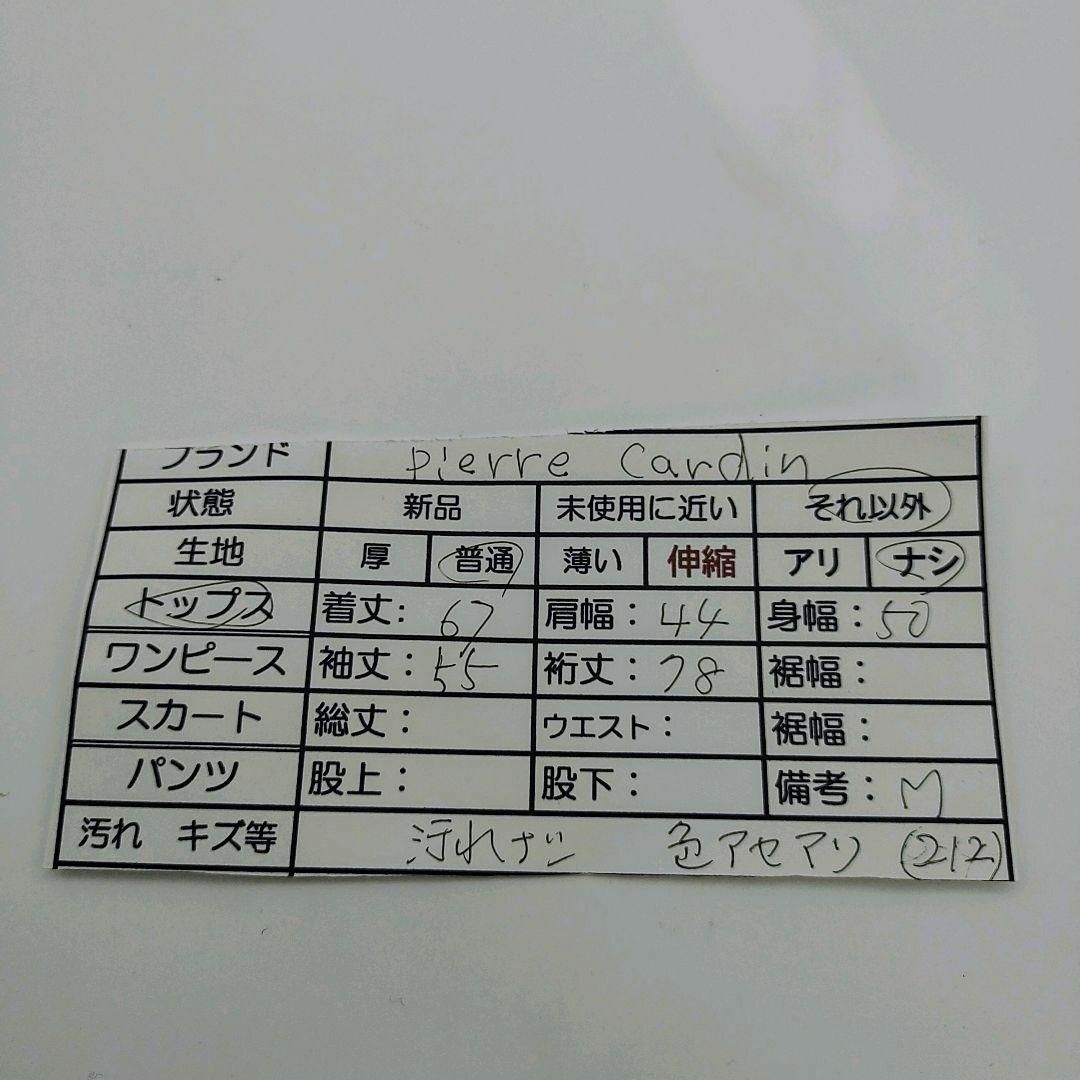 ブランド pierre cardin
状態 新品 未使用に近い それ以外
生地 厚 普通 薄い 伸縮 アリ ナシ
トップス 着丈: 67 肩幅: 44 身幅: 50
ワンピース 袖丈: 55 裄丈: 78 裾幅:
スカート 総丈: ウエスト: 裾幅:
パンツ 股上: 股下: 備考: M
汚れ キズ等 汚れナシ 色アセアリ (212)